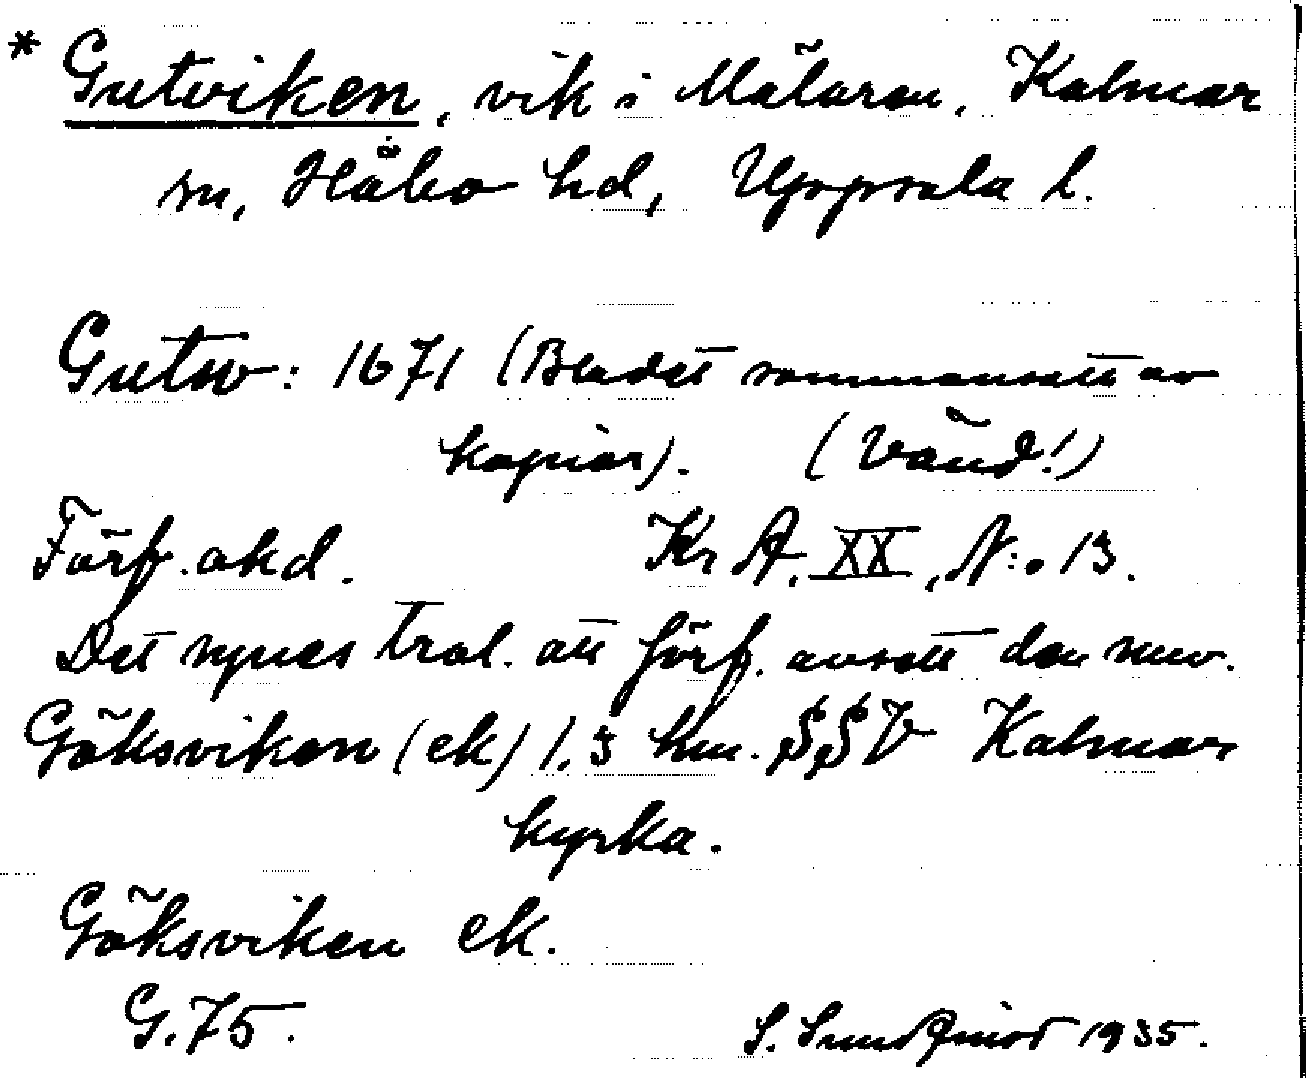 * Gutviken, vik i Mälaren, Kalmar
sn, Håbo hd, Uppsala l.
Gutsv: 1671 (Bladet sammansatt av
kopior). (Vänd!)
Förf. okd. Kr A. XX, N:o 13.
Det synes trol. att förf. avsett den nuv.
Göksviken (ek) 1.3 km. SSV Kalmar
kyrka.
Göksviken ek.
G. 75. S. Sundqvist 1935.